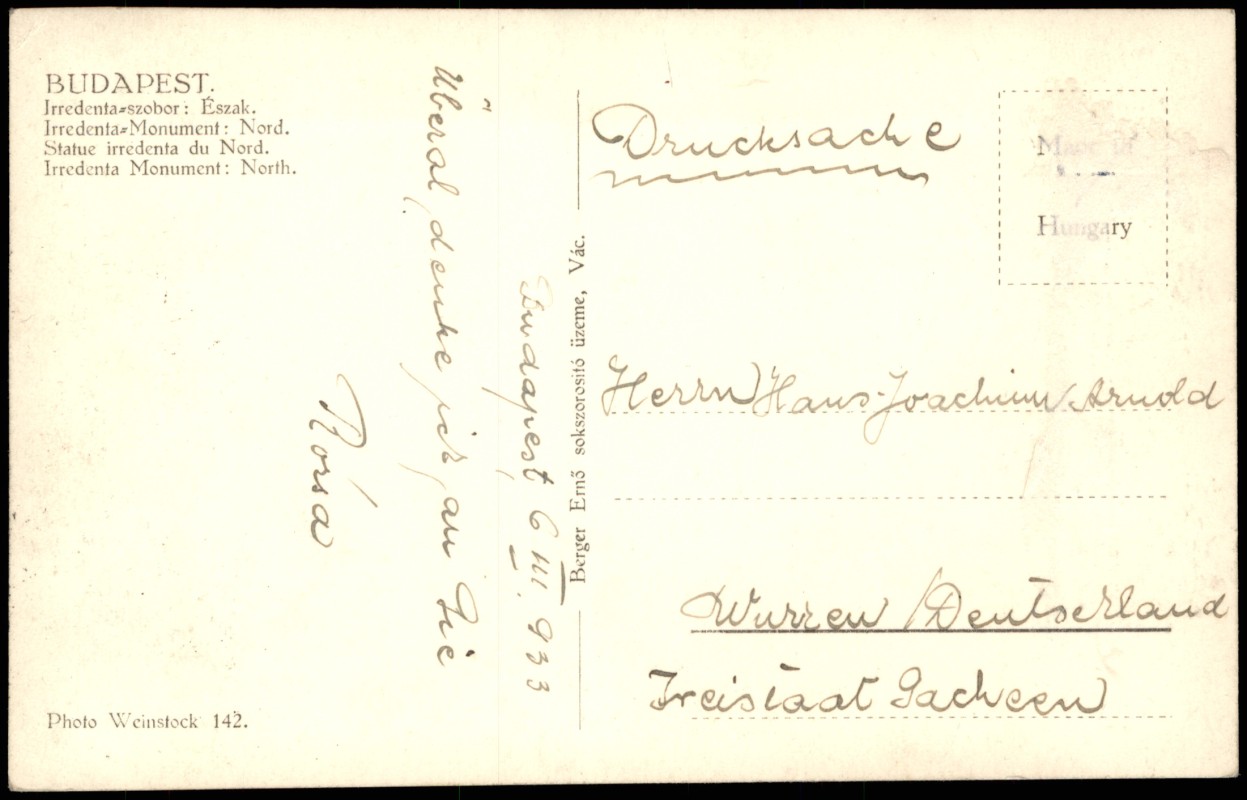 BUDAPEST.
Irredenta-szobor: Észak.
Irredenta-Monument: Nord.
Statue irredenta du Nord.
Irredenta Monument: North.
Budapest, 6 III. 933
Überal, denke ich, an Dić
Rósa
Photo Weinstock 142.
Berger Ernő sokszorosító üzeme, Vác.
Drucksache
Made in
Hungary
Herrn Hans-Joachim Arnold
Wurzen / Deutschland
Freistaat Sachsen